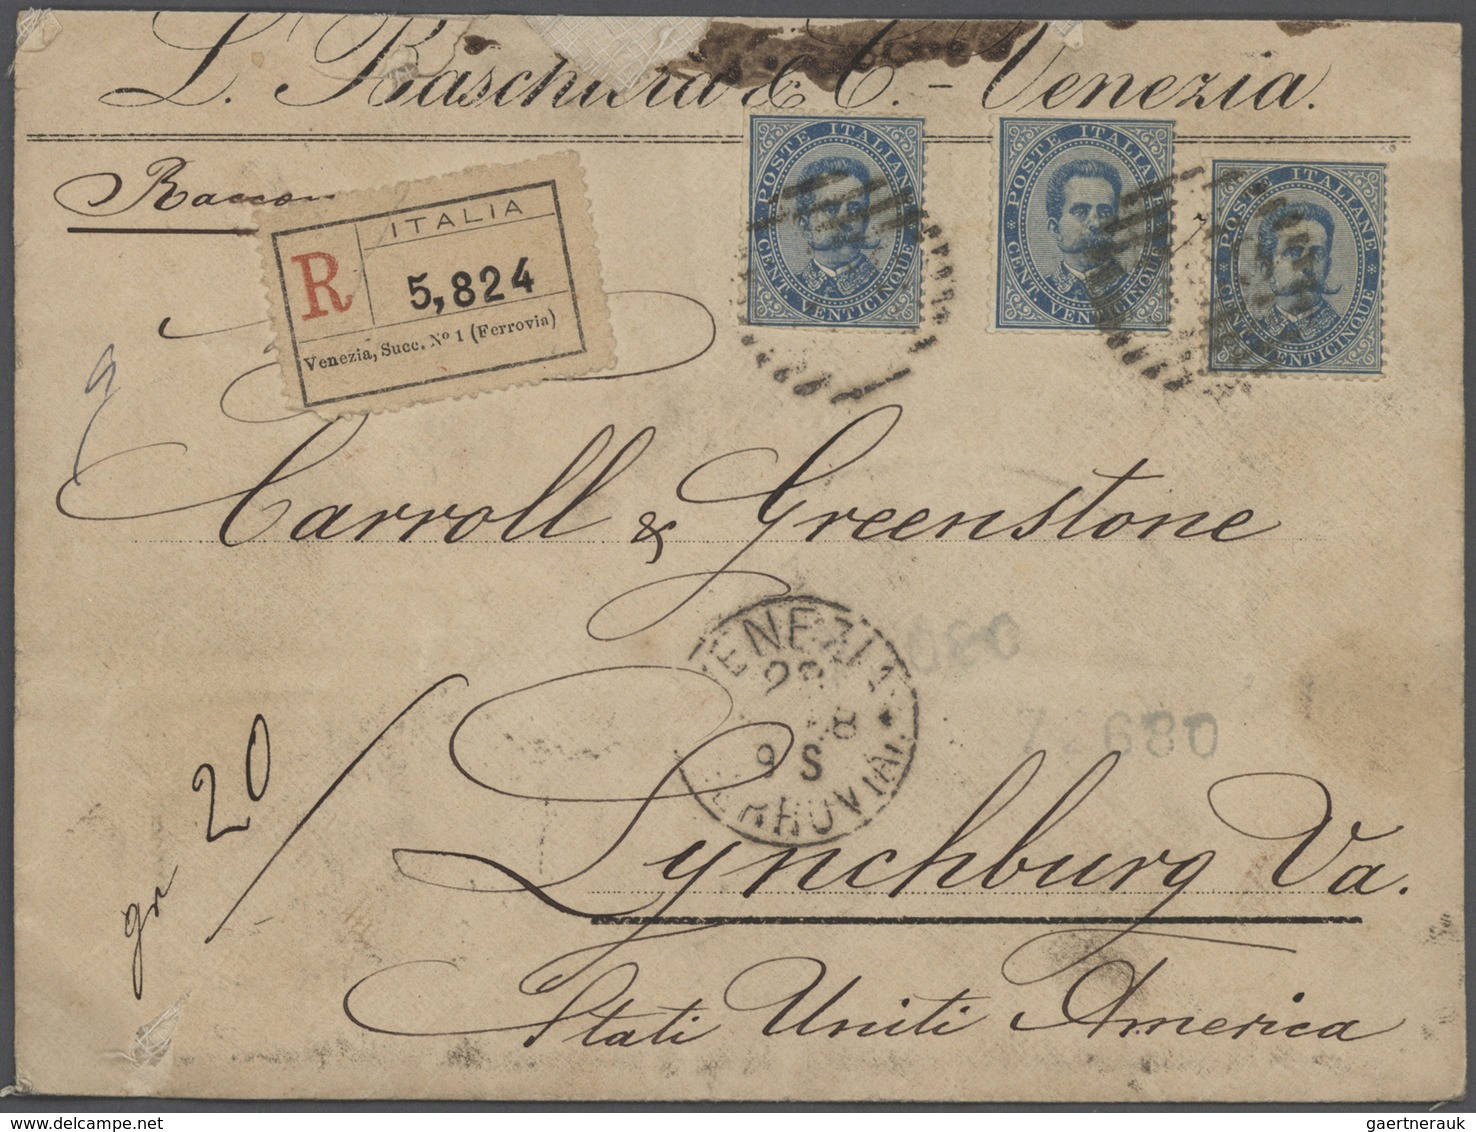 L. Baschiera & C. - Venezia.
Raccom
ITALIA
R
5,824
Venezia, Succ. Nº 1 (Ferrovia)
POSTE ITALIANE
CENT. VENTICINQUE
POSTE ITALIANE
CENT. VENTICINQUE
POSTE ITALIANE
CENT. VENTICINQUE
Carroll & Greenstone
VENEZIA
9 S
gr 20
Lynchburg Va.
Stati Uniti America
gaertnerauk